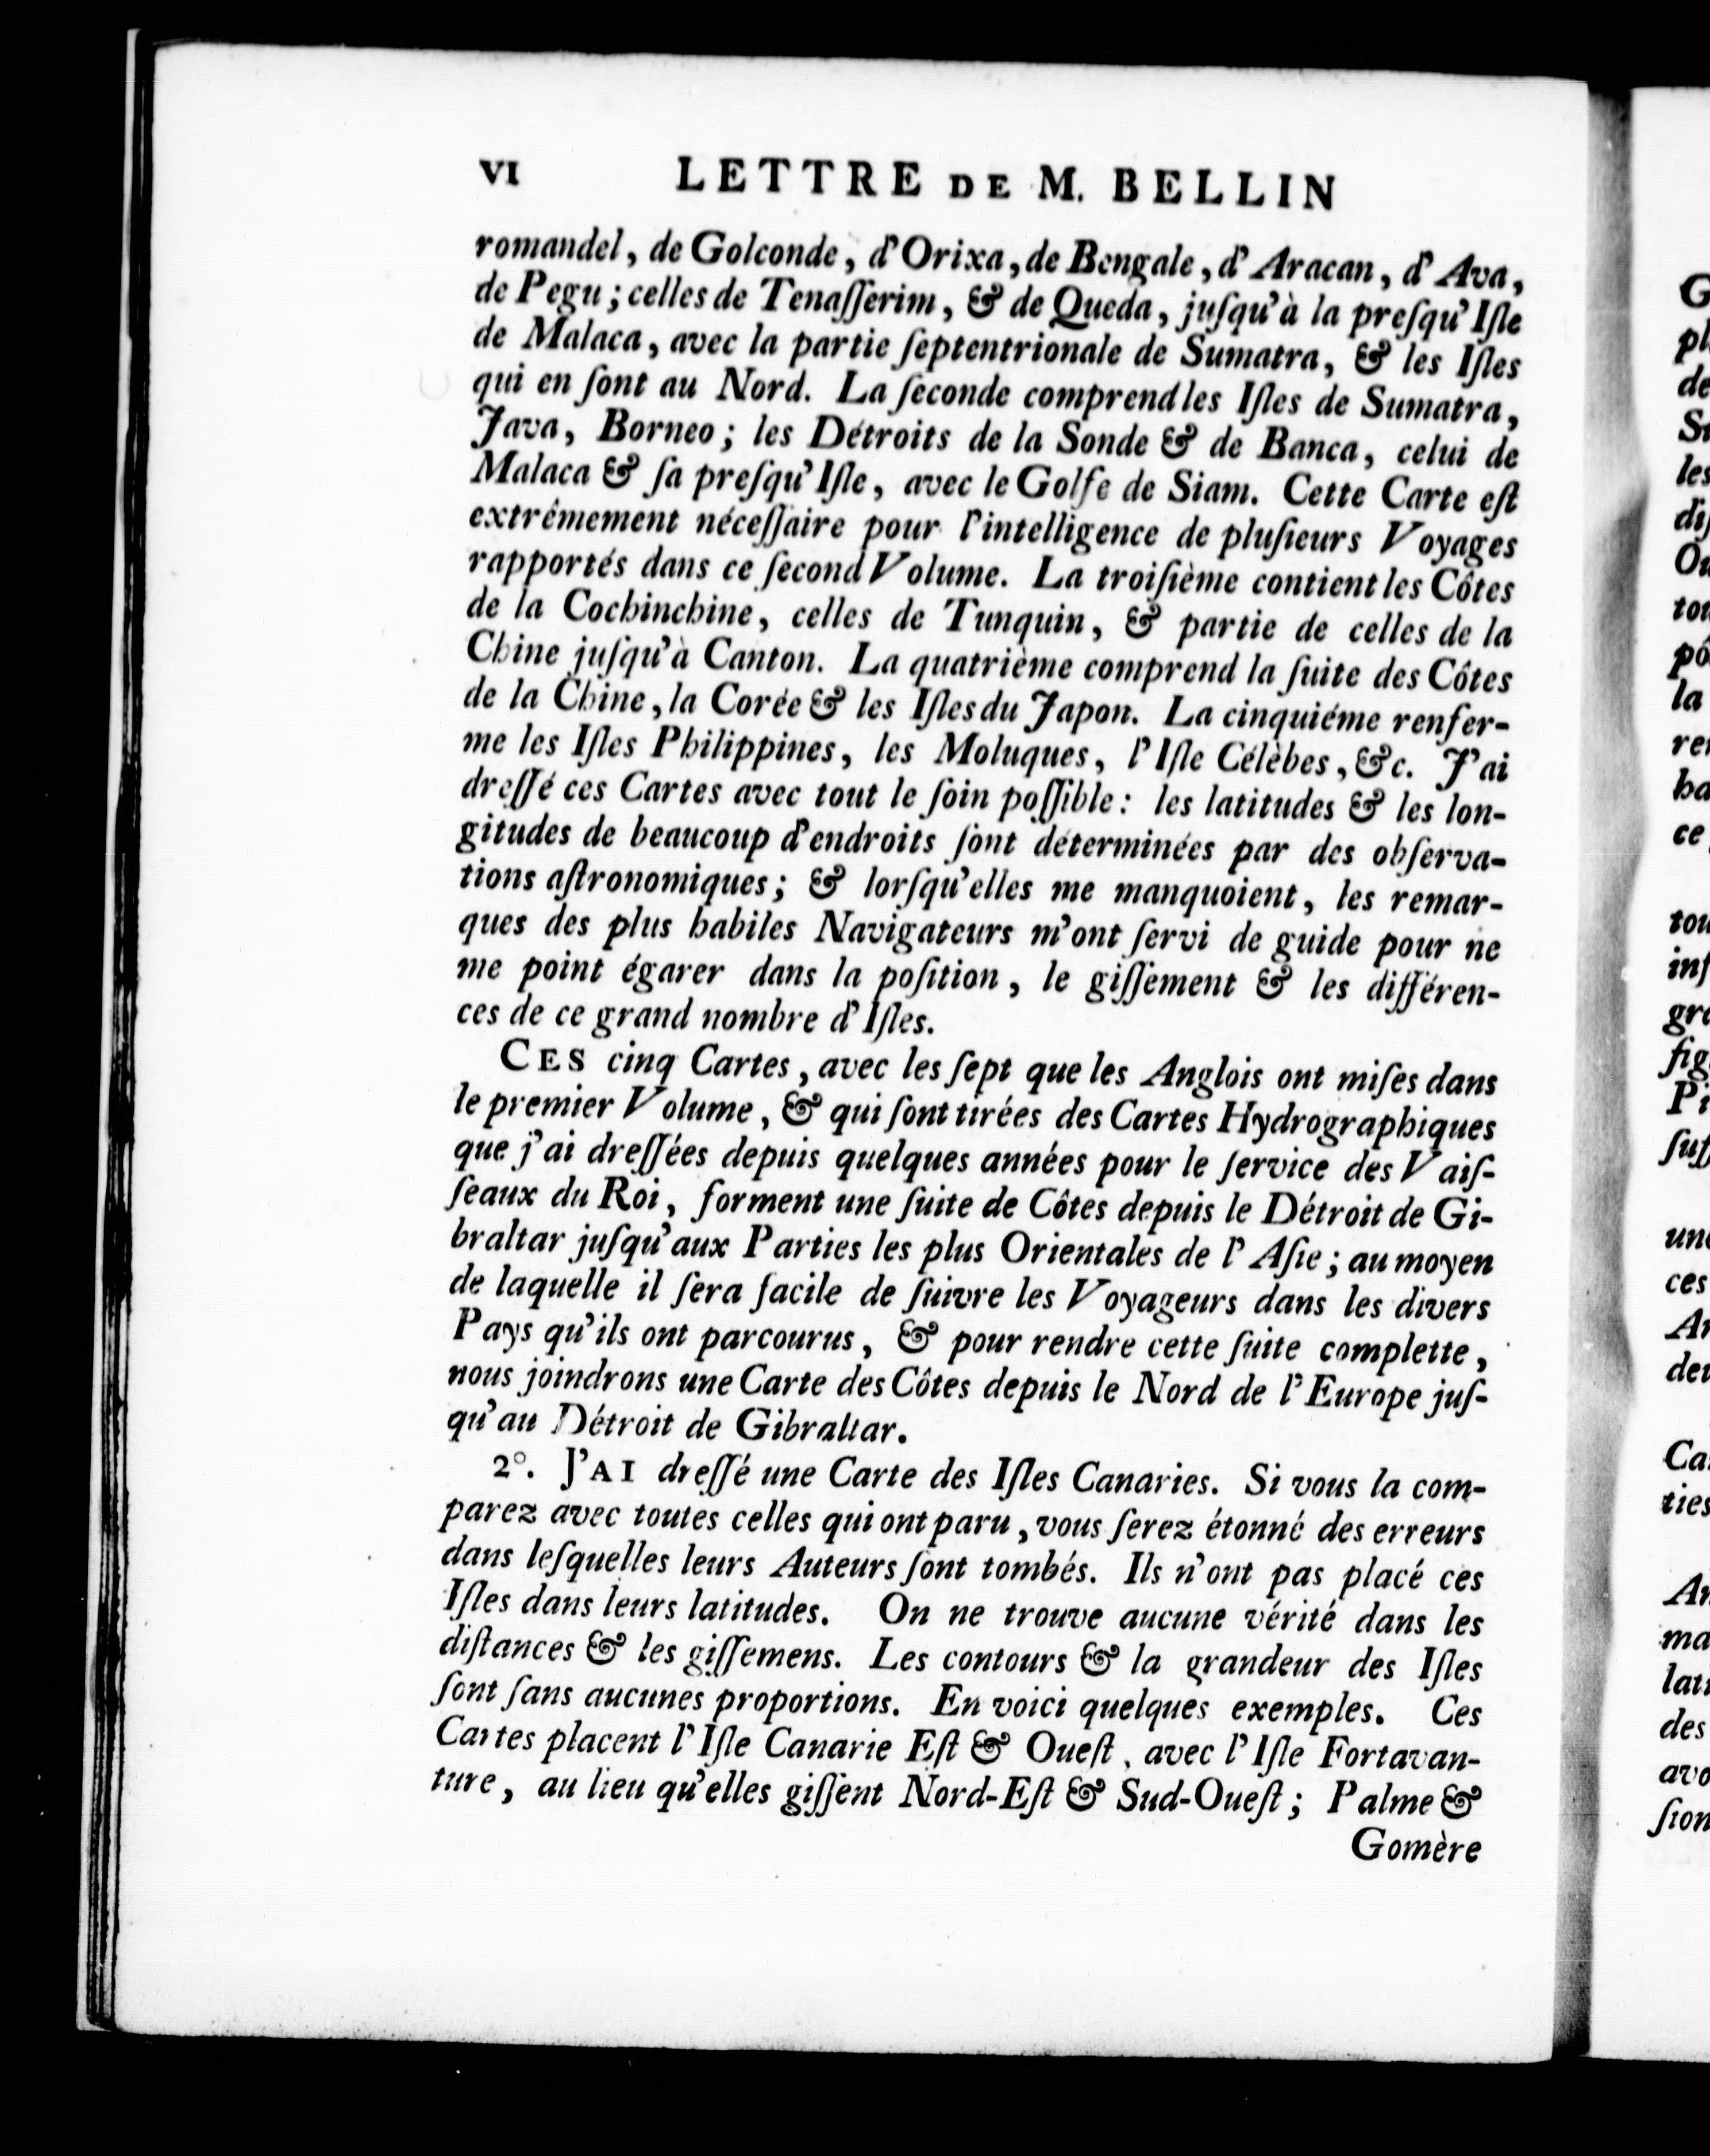 VI LETTRE DE M. BELLIN
romandel, de Golconde, d'Orixa, de Bengale, d'Aracan, d'Ava,
de Pegu; celles de Tenaſſerim, & de Queda, juſqu'à la preſqu'Iſle
de Malaca, avec la partie ſeptentrionale de Sumatra, & les Iſles
qui en ſont au Nord. La ſeconde comprend les Iſles de Sumatra,
Java, Borneo; les Détroits de la Sonde & de Banca, celui de
Malaca & ſa preſqu'Iſle, avec le Golfe de Siam. Cette Carte eſt
extrêmement néceſſaire pour l'intelligence de pluſieurs Voyages
rapportés dans ce ſecond Volume. La troiſième contient les Côtes
de la Cochinchine, celles de Tunquin, & partie de celles de la
Chine juſqu'à Canton. La quatrième comprend la ſuite des Côtes
de la Chine, la Corée & les Iſles du Japon. La cinquiéme renfer-
me les Iſles Philippines, les Moluques, l'Iſle Célèbes, &c. J'ai
dreſſé ces Cartes avec tout le ſoin poſſible: les latitudes & les lon-
gitudes de beaucoup d'endroits ſont déterminées par des obſerva-
tions aſtronomiques; & lorſqu'elles me manquoient, les remar-
ques des plus habiles Navigateurs m'ont ſervi de guide pour ne
me point égarer dans la poſition, le giſſement & les différen-
ces de ce grand nombre d'Iſles.
CES cinq Cartes, avec les ſept que les Anglois ont miſes dans
le premier Volume, & qui ſont tirées des Cartes Hydrographiques
que j'ai dreſſées depuis quelques années pour le ſervice des Vaiſ-
ſeaux du Roi, forment une ſuite de Côtes depuis le Détroit de Gi-
braltar juſqu'aux Parties les plus Orientales de l'Aſie; au moyen
de laquelle il ſera facile de ſuivre les Voyageurs dans les divers
Pays qu'ils ont parcourus, & pour rendre cette ſuite complette,
nous joindrons une Carte des Côtes depuis le Nord de l'Europe juſ-
qu'au Détroit de Gibraltar.
2°. J'AI dreſſé une Carte des Iſles Canaries. Si vous la com-
parez avec toutes celles qui ont paru, vous ſerez étonné des erreurs
dans leſquelles leurs Auteurs ſont tombés. Ils n'ont pas placé ces
Iſles dans leurs latitudes. On ne trouve aucune vérité dans les
diſtances & les giſſemens. Les contours & la grandeur des Iſles
ſont ſans aucunes proportions. En voici quelques exemples. Ces
Cartes placent l'Iſle Canarie Eſt & Oueſt, avec l'Iſle Fortavan-
ture, au lieu qu'elles giſſent Nord-Eſt & Sud-Oueſt; Palme &
Gomère